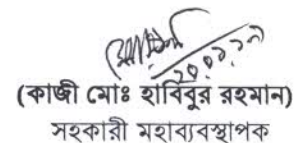 ২০.০১.১৭
(কাজী মোঃ হাবিবুর রহমান)
সহকারী মহাব্যবস্থাপক